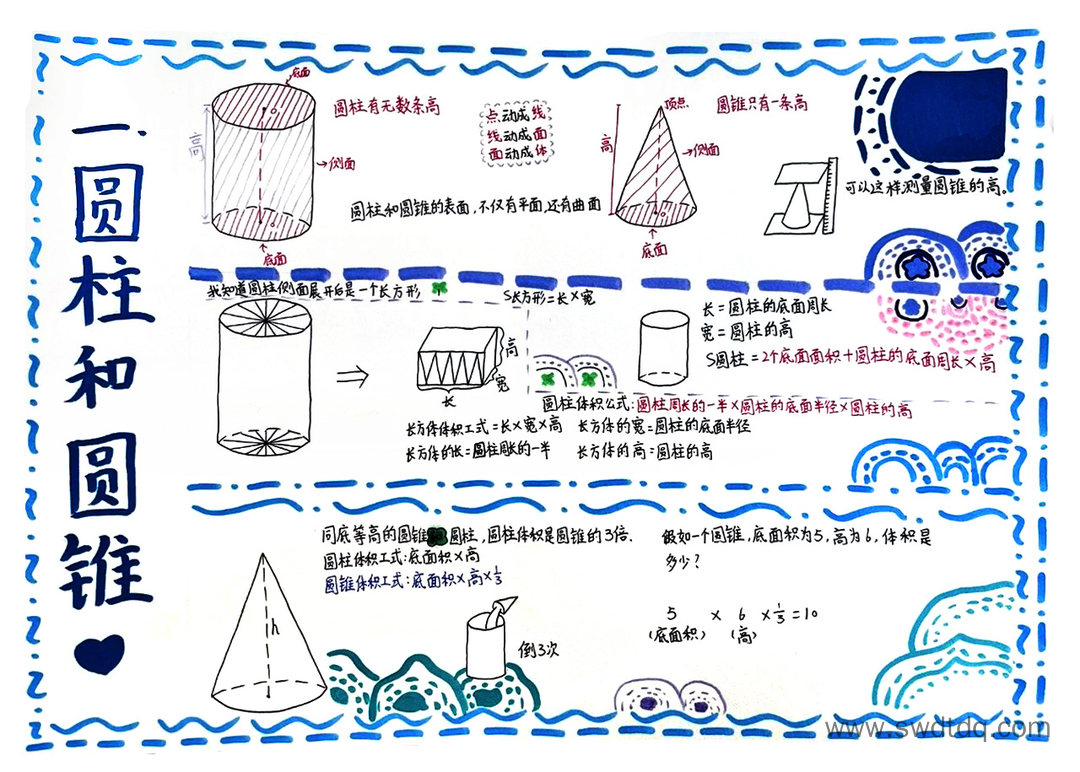 一.圆柱和圆锥
底面
圆柱有无数条高
高
侧面
底面
点动成线
线动成面
面动成体
顶点
圆锥只有一条高
高
侧面
底面
可以这样测量圆锥的高。
圆柱和圆锥的表面,不仅有平面,还有曲面
我知道圆柱侧面展开后是一个长方形
S长方形=长×宽
高
宽
长
长=圆柱的底面周长
宽=圆柱的高
S圆柱=2个底面面积+圆柱的底面周长×高
圆柱体积公式:圆柱周长的一半×圆柱的底面半径×圆柱的高
长方体体积工式=长×宽×高 长方体的宽=圆柱的底面半径
长方体的长=圆柱周长的一半 长方体的高=圆柱的高
同底等高的圆锥 圆柱,圆柱体积是圆锥的3倍.
圆柱体积工式:底面积×高
圆锥体积工式:底面积×高×1/3
h
倒3次
假如一个圆锥,底面积为5,高为6,体积是
多少?
5 × 6 ×1/3=10
(底面积) (高)
www.swdtdq.com